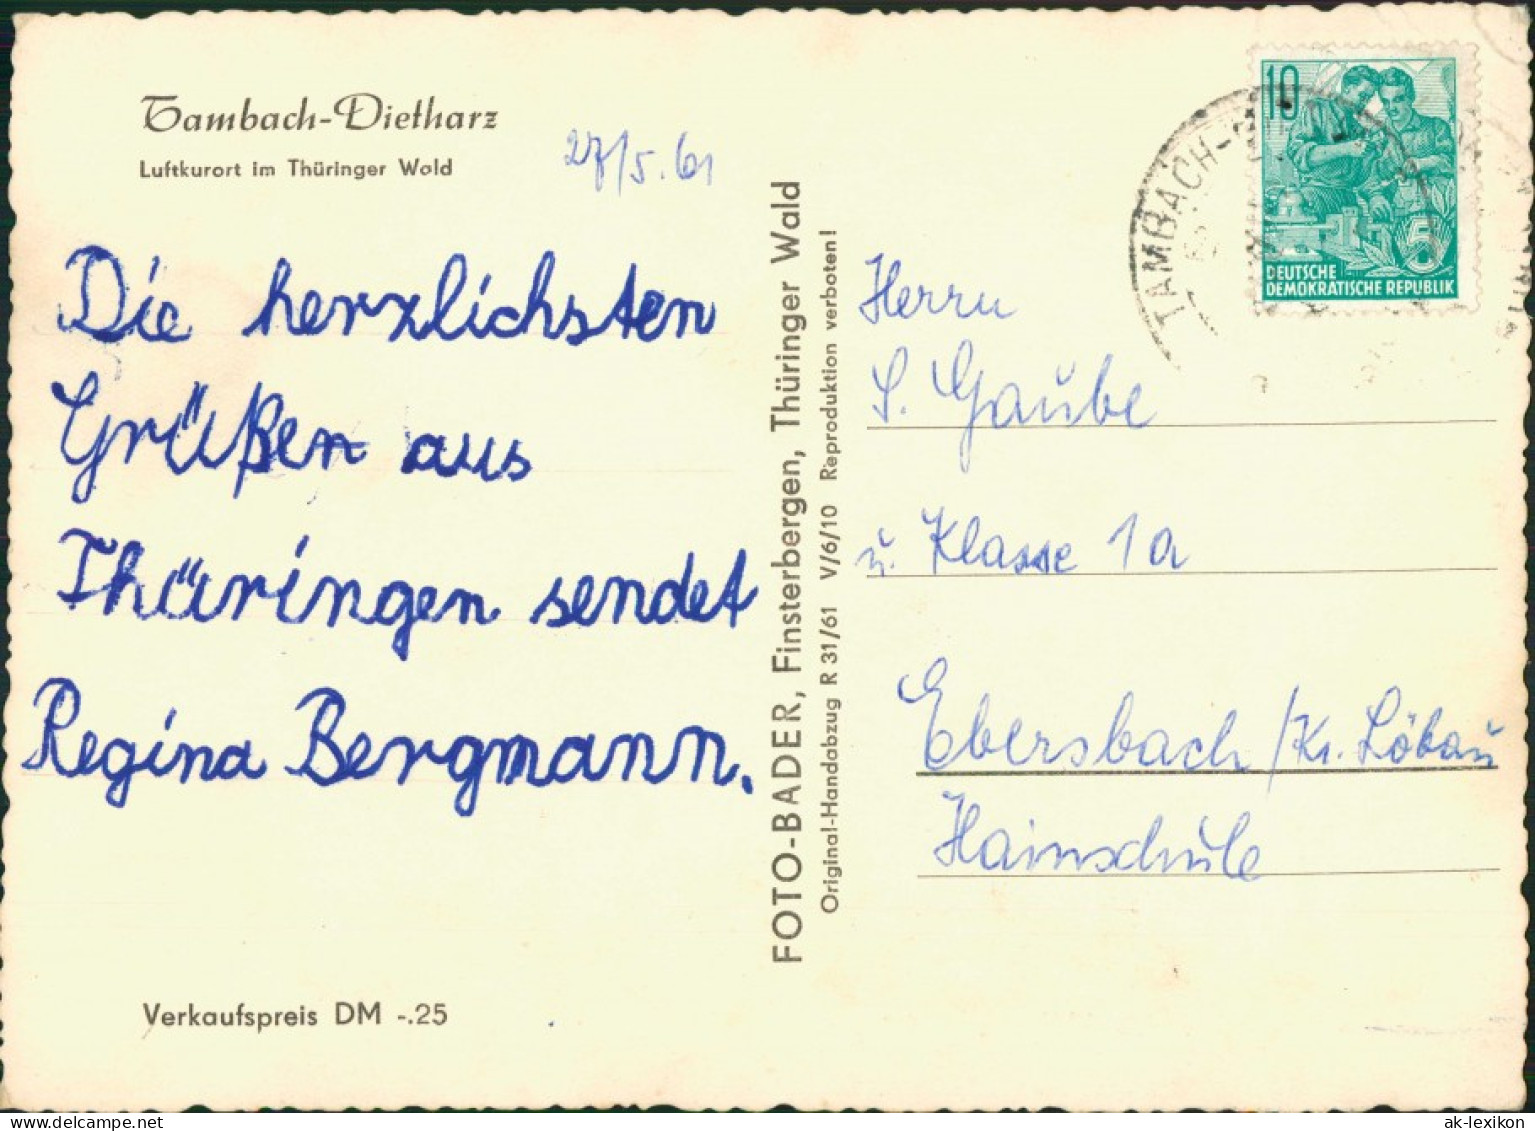 Tambach-Dietharz
Luftkurort im Thüringer Wald
27/5.61
Die herzlichsten
Grüßen aus
Thüringen sendet
Regina Bergmann.
Verkaufspreis DM -.25
FOTO-BADER, Finsterbergen, Thüringer Wald
Original-Handabzug R 31/61 V/6/10 Reproduktion verboten!
TAMBACH-
10
5
DEUTSCHE
DEMOKRATISCHE REPUBLIK
Herrn
S. Gaube
u. Klasse 1a
Ebersbach/Kr. Löbau
Hainschule
ak-lexikon